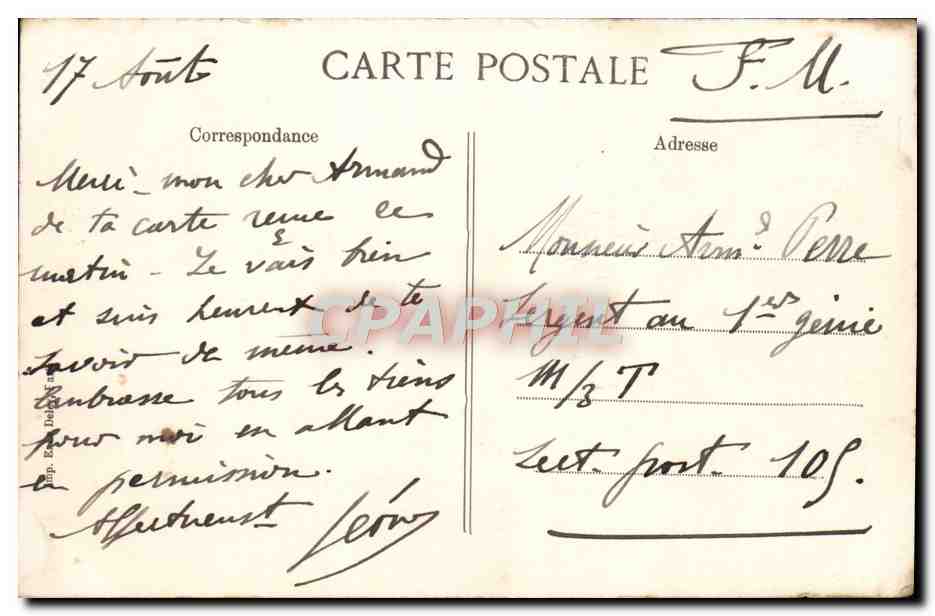 17 Août
CARTE POSTALE
F. M.
Correspondance
Merci - mon cher Armand
de ta carte reçue ce
matin - Je vais bien
et suis heureux de te
savoir de même.
Embrasse tous les tiens
pour moi en allant
en permission.
Affectueust
Adresse
Monsieur Armd Perre
Sergent au 1er génie
M/3 T
Sect. post. 105.
CPAPHIL
Imp.